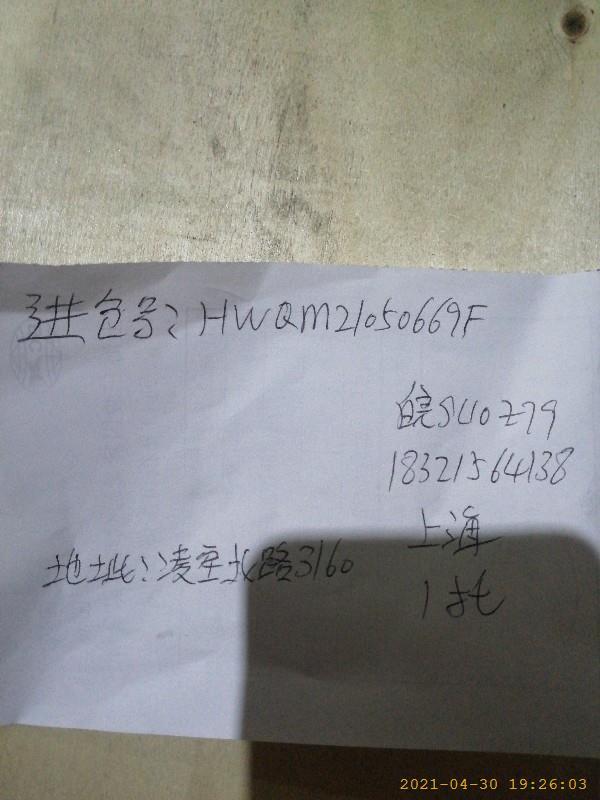 进仓号:HWQM21050669F
皖S40279
18321564138
上海
地址:凌空北路3160
1托
2021-04-30 19:26:03